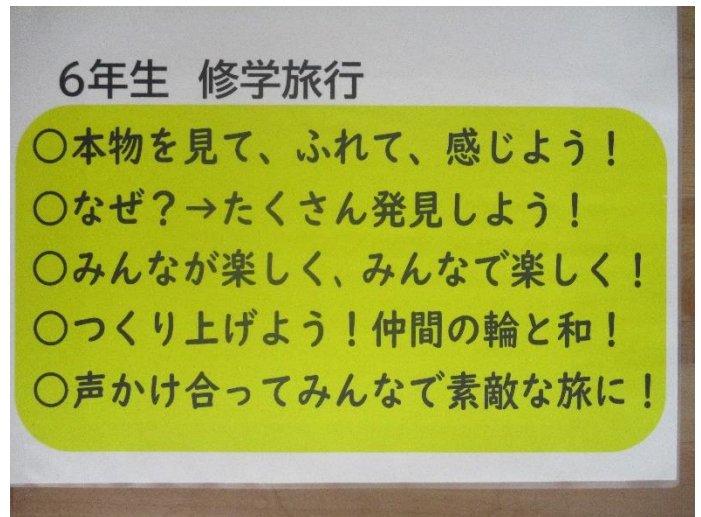 6年生 修学旅行
○本物を見て、ふれて、感じよう！
○なぜ？→たくさん発見しよう！
○みんなが楽しく、みんなで楽しく！
○つくり上げよう！仲間の輪と和！
○声かけ合ってみんなで素敵な旅に！